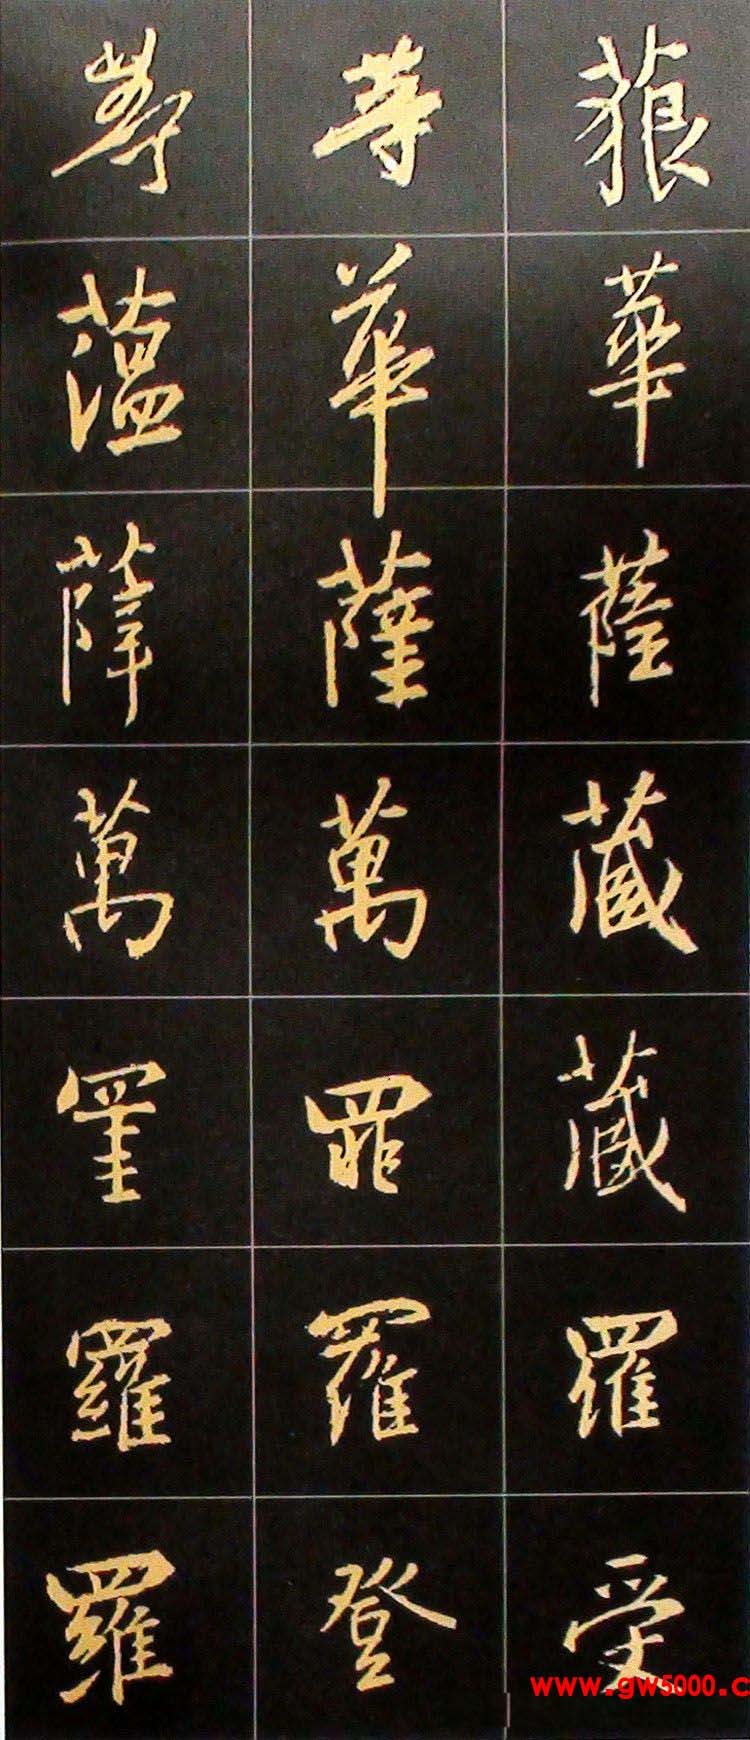 等 等
蘊 華 華
薛 薩 薩
萬 萬 藏
罣 罪 藏
羅 羅 羅
羅 登 受
www.gw5000.c